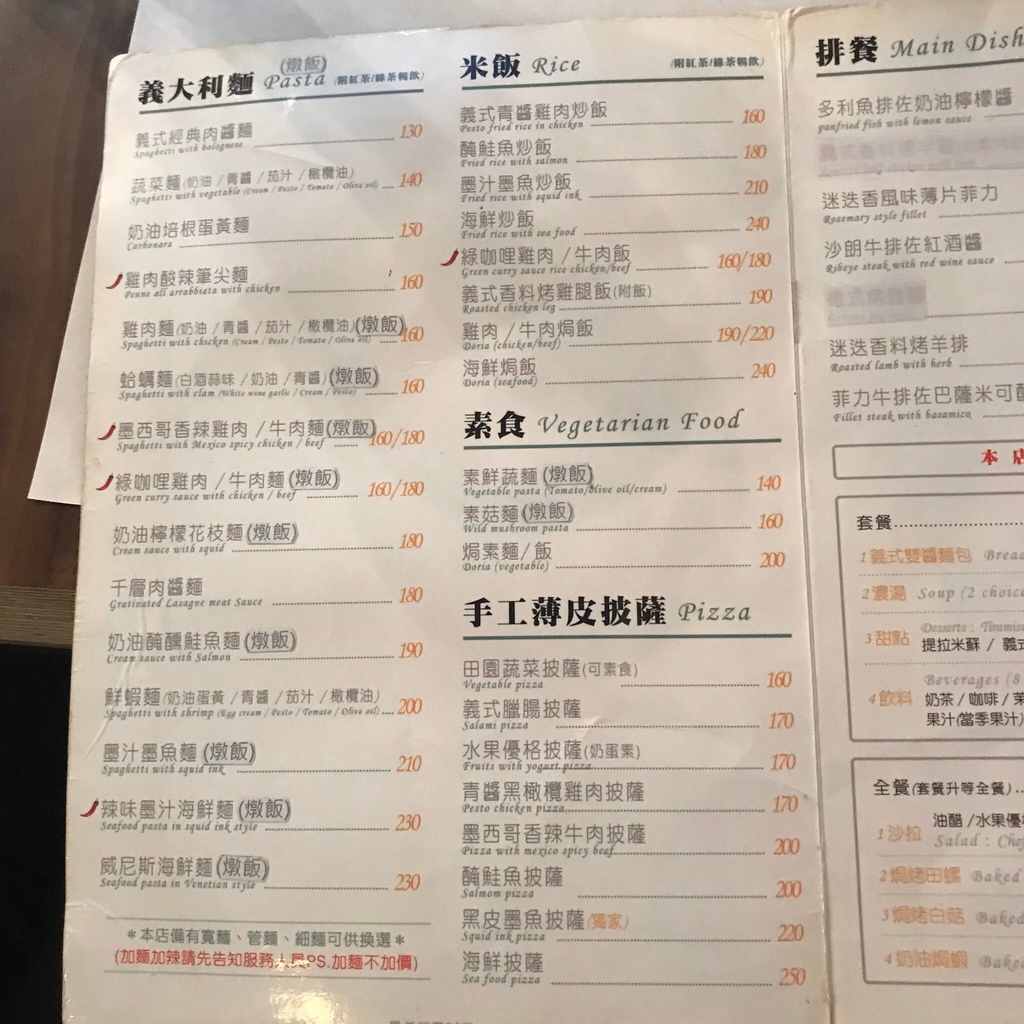 義大利麵 (燉飯) Pasta (附紅茶/綠茶暢飲)
義式經典肉醬麵 130
Spaghetti with bolognese
蔬菜麵(奶油/青醬/茄汁/橄欖油) 140
Spaghetti with vegetable (Cream / Pesto / Tomato / Olive oil)
奶油培根蛋黃麵 150
Carbonara
雞肉酸辣筆尖麵 160
Penne all arrabbiata with chicken
雞肉麵(奶油/青醬/茄汁/橄欖油)(燉飯) 160
Spaghetti with chicken (Cream / Pesto / Tomato / Olive oil)
蛤蠣麵(白酒蒜味/奶油/青醬)(燉飯) 160
Spaghetti with clam (White wine garlic / Cream / Pesto)
墨西哥香辣雞肉/牛肉麵(燉飯) 160/180
Spaghetti with Mexico spicy chicken / beef
綠咖哩雞肉/牛肉麵(燉飯) 160/180
Green curry sauce with chicken / beef
奶油檸檬花枝麵(燉飯) 180
Cream sauce with squid
千層肉醬麵 180
Gratinated Lasagne meat Sauce
奶油醃醺鮭魚麵(燉飯) 190
Cream sauce with Salmon
鮮蝦麵(奶油蛋黃/青醬/茄汁/橄欖油) 200
Spaghetti with shrimp (Egg cream / Pesto / Tomato / Olive oil)
墨汁墨魚麵(燉飯) 210
Spaghetti with squid ink
辣味墨汁海鮮麵(燉飯) 230
Seafood pasta in squid ink style
威尼斯海鮮麵(燉飯) 230
Seafood pasta in Venetian style
*本店備有寬麵、管麵、細麵可供換選*
(加麵加辣請先告知服務人員PS.加麵不加價)
米飯 Rice (附紅茶/綠茶暢飲)
義式青醬雞肉炒飯 160
Pesto fried rice in chicken
醃鮭魚炒飯 180
Fried rice with salmon
墨汁墨魚炒飯 210
Fried rice with squid ink
海鮮炒飯 240
Fried rice with sea food
綠咖哩雞肉/牛肉飯 160/180
Green curry sauce rice chicken/beef
義式香料烤雞腿飯(附飯) 190
Roasted chicken leg
雞肉/牛肉焗飯 190/220
Doria (chicken/beef)
海鮮焗飯 240
Doria (seafood)
素食 Vegetarian Food
素鮮蔬麵(燉飯) 140
Vegetable pasta (Tomato/Olive oil/cream)
素菇麵(燉飯) 160
Wild mushroom pasta
焗素麵/飯 200
Doria (vegetable)
手工薄皮披薩 Pizza
田園蔬菜披薩(可素食) 160
Vegetable pizza
義式臘腸披薩 170
Salami pizza
水果優格披薩(奶蛋素) 170
Fruits with yogurt pizza
青醬黑橄欖雞肉披薩 170
Pesto chicken pizza
墨西哥香辣牛肉披薩 200
Pizza with mexico spicy beef
醃鮭魚披薩 200
Salmom pizza
黑皮墨魚披薩(獨家) 220
Squid ink pizza
海鮮披薩 250
Sea food pizza
排餐 Main Dish
多利魚排佐奶油檸檬醬
panfried fish with lemon sauce
迷迭香風味薄片菲力
Rosemary style fillet
沙朗牛排佐紅酒醬
Ribeye steak with red wine sauce
迷迭香料烤羊排
Roasted lamb with herb
菲力牛排佐巴薩米可醋
Fillet steak with basamico
本店
套餐
1義式雙醬麵包 Brea
2濃湯 Soup (2 choice
3甜點 Desserts : Tiramisu
提拉米蘇 / 義式
Beverages (8
4飲料 奶茶/咖啡/茉
果汁(當季果汁)
全餐(套餐升等全餐)
油醋/水果優格
1沙拉 Salad : Che
2焗烤田螺 Baked
3焗烤白菇 Baked
4奶油焗蝦 Baked